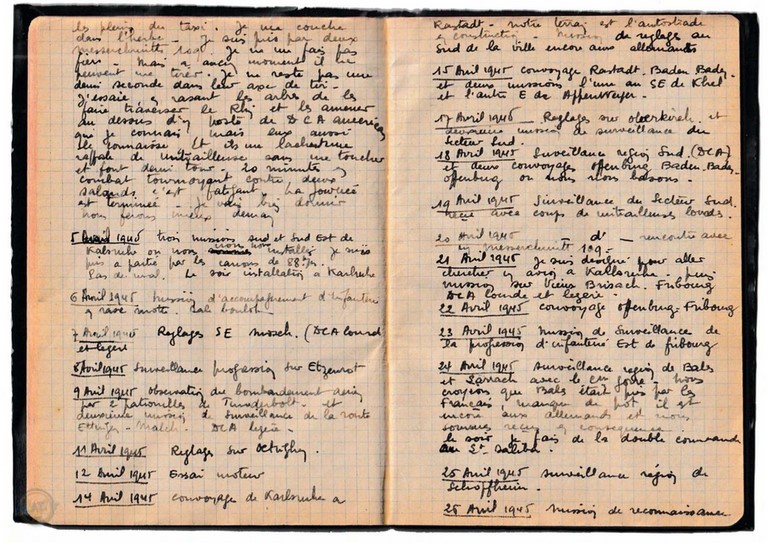 les pleins du taxi. Je me couche
dans l'herbe - Je suis pris par deux
messerchmitts 109. Je ne me fais pas
fier. Mais a aucun moment il ne
peuvent me tirer. Je ne reste pas une
demi seconde dans leur axe de tir.
J'essaie, en rasant les arbres de les
faire traverser le Rhin et les amener
au dessus d'un poste de DCA americain
que je connais, mais eux aussi
le connaisse. Et ils me lachent une
raffale de mitrailleuse sans me toucher
et font demi tour. 20 minutes en
combat tournoyant contre deux
salauds, c'est fatigant. La journée
est terminée. Je vais bien dormir
nous ferons mieux demain
5 Avril 1945 trois missions sud et Sud Est de
Kalsruhe ou nous nous installés je suis
pris a partie par les canons de 88.
Pas de mal. Le soir installation a Karlsruhe
6 Avril 1945 mission d'accompagnement d'infanterie
7 Avril 1945 Reglages SE mosch. (DCA lourde
et legere
8 Avril 1945 Surveillance progression sur Etzenrot
9 Avril 1945 observation du bombardement
par 2 patrouilles de Tunderbolt et
deuxieme mission de Surveillance de la route
Ettlingen - Malch. DCA legere.
11 Avril 1945 Reglages sur
12 Avril 1945 Essai moteur
14 Avril 1945 convoyage de Karlsruhe a
Rastadt - notre terrain est l'autostrade
en construction. Mission de reglage au
Sud de la ville encore aux allemands
15 Avril 1945 convoyage Rastadt. Baden Baden.
et deux missions l'une au SE de Khel
et l'autre E de Appenweyer.
17 Avril 1945 - Reglages sur oberkirch. et
deuxieme mission de surveillance du
Secteur Sud.
18 Avril 1945 Surveillance region Sud. (DCA)
et deux convoyages offenburg Baden. Baden.
offenburg ou nous nous basons
19 Avril 1945 Surveillance du Secteur Sud.
recu avec coups de mitrailleuses lourdes.
20 Avril 1945 - d° - rencontre avec
un messerchmitt 109.
21 Avril 1945 Je suis designé pour aller
chercher un avion a Kallsruhe. puis
mission sur Vieux Brisach. Fribourg
DCA lourde et legere.
22 Avril 1945 convoyage offenburg-Fribourg
23 Avril 1945 Mission de Surveillance de
la progression d'infanterie Est de fribourg
24 Avril 1945 surveillance region de Bals
et Lorrach avec le nous
croyons que Bals etait pris par les
francais, manque de pot il est
encore aux allemands et nous
sommes recus en consequence.
le soir je fais de la double commande
au Lt Saliba.
25 Avril 1945 surveillance région de
Schopfheim.
26 Avril 1945 mission de reconnaissance